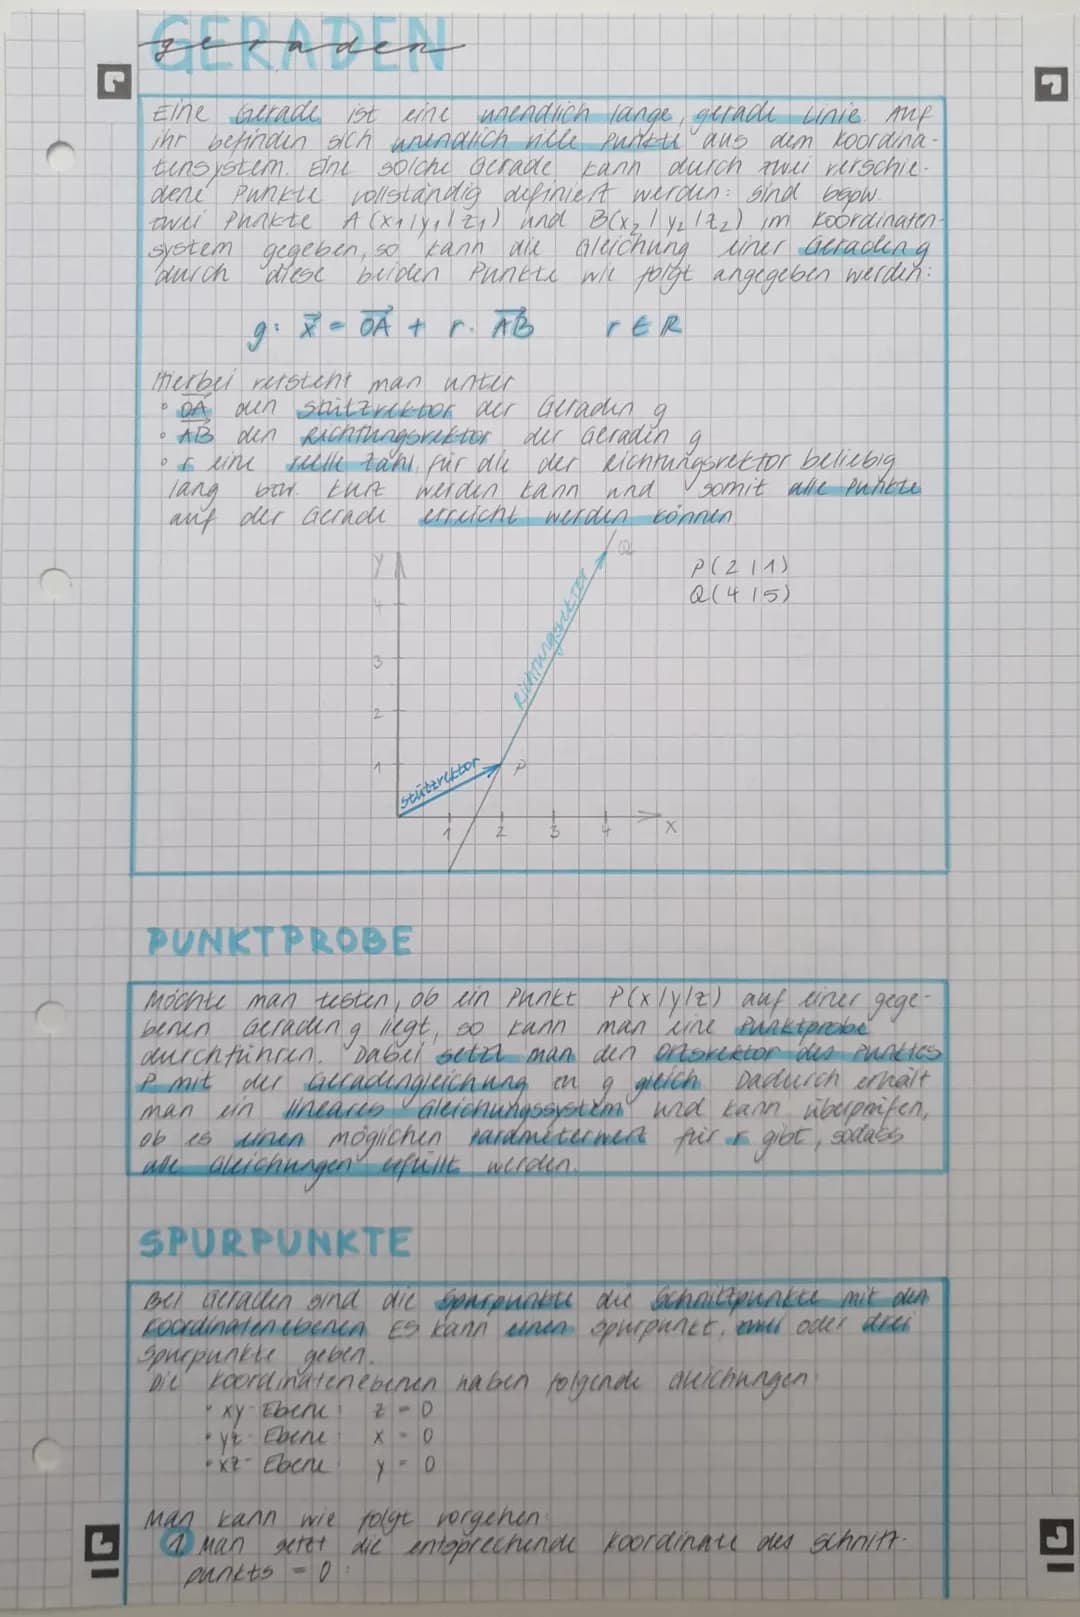 GERADEN
geraden
Eine Gerade ist eine unendlich lange, gerade Linie. Auf
ihr befinden sich unendlich viele Punkte aus dem Koordina-
tensystem. Eine solche Gerade kann durch zwei verschie-
dene Punkte vollständig definiert werden: Sind bspw.
zwei Punkte A(x₁|y₁|z₁) und B(x₂|y₂|z₂) im Koordinaten-
system gegeben, so kann die Gleichung einer Geraden g
durch diese beiden Punkte wie folgt angegeben werden:
g: x⃗ = OA⃗ + r · AB⃗ r ∈ R
Hierbei versteht man unter
• OA⃗ den Stützvektor der Geraden g
• AB⃗ den Richtungsvektor der Geraden g
• r eine reelle Zahl, für die der Richtungsvektor beliebig
lang bzw. kurz werden kann und somit alle Punkte
auf der Gerade erreicht werden können
y
Q
P(2|1)
Q(4|5)
4
Richtungsvektor
3
2
1
Stützvektor
P
1 2 3 4 x
PUNKTPROBE
Möchte man testen, ob ein Punkt P(x|y|z) auf einer gege-
benen Geraden g liegt, so kann man eine Punktprobe
durchführen. Dabei setzt man den Ortsvektor des Punktes
P mit der Geradengleichung zu g gleich. Dadurch erhält
man ein lineares Gleichungssystem und kann überprüfen,
ob es einen möglichen Parameterwert für r gibt, sodass
alle Gleichungen erfüllt werden.
SPURPUNKTE
Bei Geraden sind die Spurpunkte die Schnittpunkte mit den
Koordinatenebenen. Es kann einen Spurpunkt, zwei oder drei
Spurpunkte geben.
Die Koordinatenebenen haben folgende Gleichungen:
• xy-Ebene: z = 0
• yz-Ebene: x = 0
• xz-Ebene: y = 0
Man kann wie folgt vorgehen:
1. Man setzt die entsprechende Koordinate des Schnitt-
punkts = 0: